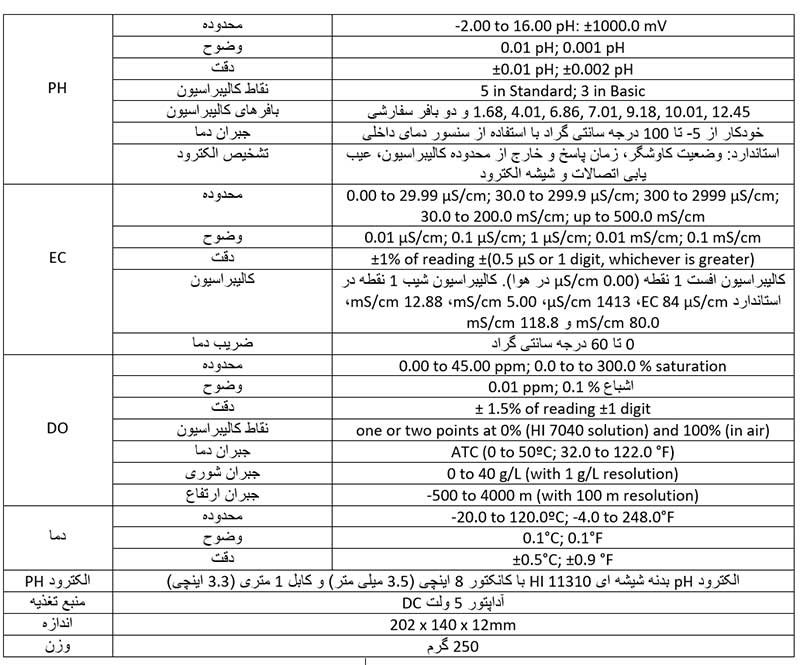 PH
محدوده
-2.00 to 16.00 pH: ±1000.0 mV
وضوح
0.01 pH; 0.001 pH
دقت
±0.01 pH; ±0.002 pH
نقاط کالیبراسیون
5 in Standard; 3 in Basic
بافرهای کالیبراسیون
1.68, 4.01, 6.86, 7.01, 9.18, 10.01, 12.45 و دو بافر سفارشی
جبران دما
خودکار از 5- تا 100 درجه سانتی گراد با استفاده از سنسور دمای داخلی
تشخیص الکترود
استاندارد: وضعیت کاوشگر، زمان پاسخ و خارج از محدوده کالیبراسیون، عیب
یابی اتصالات و شیشه الکترود
EC
محدوده
0.00 to 29.99 µS/cm; 30.0 to 299.9 µS/cm; 300 to 2999 µS/cm;
30.0 to 200.0 mS/cm; up to 500.0 mS/cm
وضوح
0.01 µS/cm; 0.1 µS/cm; 1 µS/cm; 0.01 mS/cm; 0.1 mS/cm
دقت
±1% of reading ±(0.5 µS or 1 digit, whichever is greater)
کالیبراسیون
کالیبراسیون افست 1 نقطه (0.00 µS/cm در هوا). کالیبراسیون شیب 1 نقطه در
استاندارد EC 84 µS/cm، 1413 µS/cm، 5.00 mS/cm، 12.88 mS/cm،
80.0 mS/cm و 118.8 mS/cm
ضریب دما
0 تا 60 درجه سانتی گراد
DO
محدوده
0.00 to 45.00 ppm; 0.0 to to 300.0 % saturation
وضوح
0.01 ppm; 0.1 % اشباع
دقت
± 1.5% of reading ±1 digit
نقاط کالیبراسیون
one or two points at 0% (HI 7040 solution) and 100% (in air)
جبران دما
ATC (0 to 50ºC; 32.0 to 122.0 °F)
جبران شوری
0 to 40 g/L (with 1 g/L resolution)
جبران ارتفاع
-500 to 4000 m (with 100 m resolution)
دما
محدوده
-20.0 to 120.0ºC; -4.0 to 248.0°F
وضوح
0.1°C; 0.1°F
دقت
±0.5°C; ±0.9 °F
الکترود PH
الکترود pH بدنه شیشه ای HI 11310 با کانکتور 8 اینچی (3.5 میلی متر) و کابل 1 متری (3.3 اینچی)
منبع تغذیه
آداپتور 5 ولت DC
اندازه
202 x 140 x 12mm
وزن
250 گرم